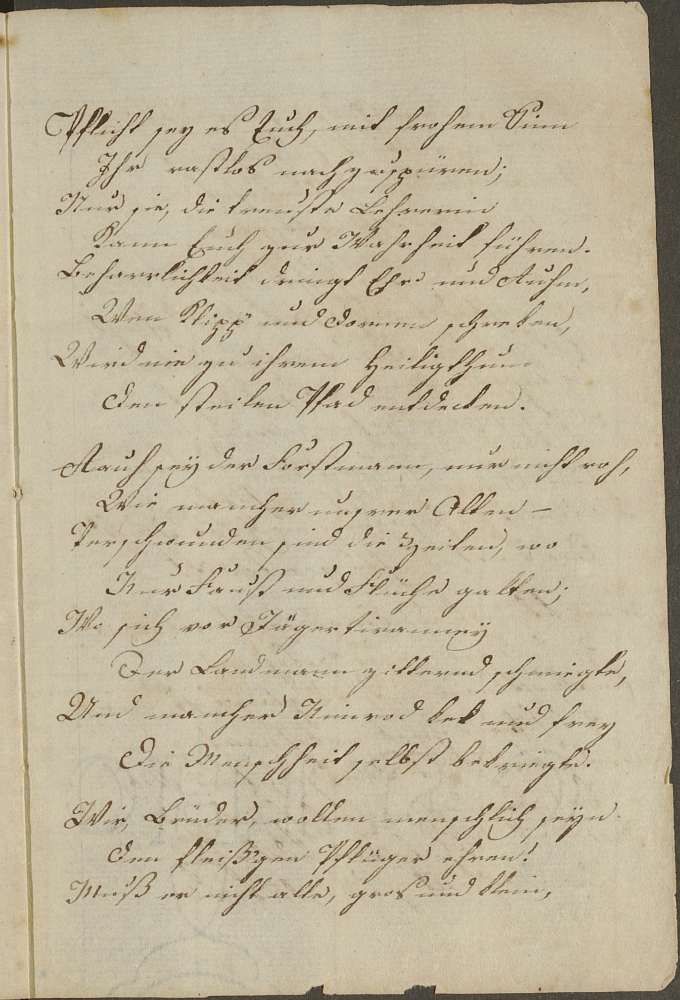 Pflicht sey es Euch, mit frohem Sinn
Ihr rastlos nachzuspüren;
Nur sie, die treuste Lehrerin
Kann Euch zur Wahrheit führen.
Beharrlichkeit bringt Ehr und Ruhm,
Wen Klipp' und Dornen schreken,
Wird nie zu ihrem Heiligthum
Den steilen Pfad entdecken.
Rauh sey der Forstmann, nur nicht roh,
Wie mancher unsrer Alten –
Verschwunden sind die Zeiten, wo
Nur Faust und Flüche galten;
Wo sich vor Jägertiranney
Der Landmann zitternd schmiegte,
Und mancher Nimrod kek und frey
Die Menschheit selbst bekriegte.
Wir, Brüder, wollen menschlich seyn
Den fleißgen Pflüger ehren!
Muß er nicht alle, gros und klein,